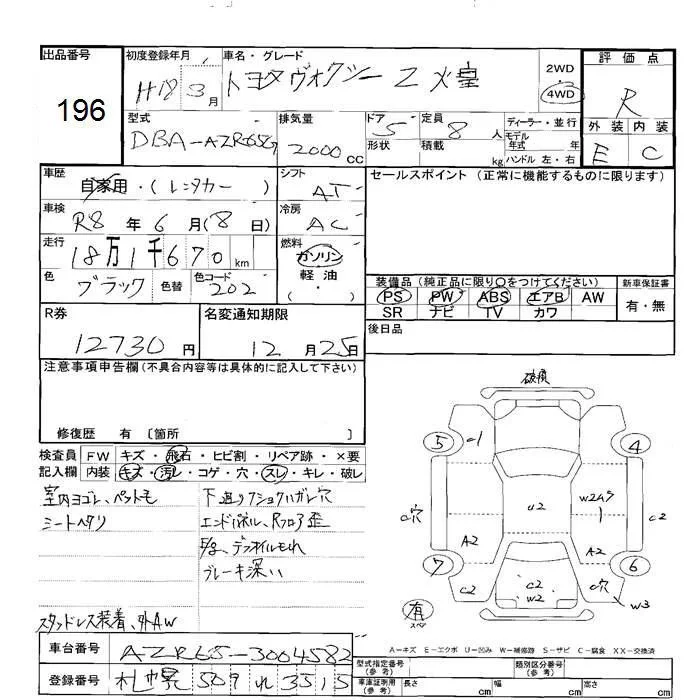 出品番号
196
初度登録年月
H18 3月
車名・グレード
トヨタ ヴォクシー Z 煌
2WD
4WD
評価点
R
外装 内装
E C
型式
DBA-AZR65G
排気量
2000 CC
ドア
5
形状
定員
8人
積載
kg
ディーラー・並行
モデル年式 年
ハンドル 左・右
車歴
自家用・(レンタカー)
シフト
AT
セールスポイント (正常に機能するものに限ります)
車検
R8年6月(8日)
冷房
AC
走行
18万1千670km
燃料
ガソリン
軽油
( ・ )
色
ブラック
色替
色コード
202
装備品 (純正品に限り○をつけてください)
PS PW ABS エアB AW
SR ナビ TV カワ
新車保証書
有・無
R券
12730円
名変通知期限
12月25日
後日品
注意事項申告欄(不具合内容等は具体的に記入して下さい)
修復歴 有 〔箇所 〕
検査員記入欄
FW キズ・飛石・ヒビ割・リペア跡・×要
内装 キズ・汚レ・コゲ・穴・スレ・キレ・破レ
室内ヨゴレ、ペットモ
シートヘタリ
スタッドレス装着、外AW
下廻りクショクハガレ穴
エンドパネル、Rフロア歪
デフオイルもれ
ブレーキ深い
破損
5
C1
4
C穴
U2
W2A3
C2
A2
A2
7
6
C2
C2
W2
C穴
W3
有
スペア
A-キズ E-エクボ U-凹み W-補修跡 S-サビ C-腐食 XX-交換済
車台番号
AZR65-3004582
登録番号
札幌 509 れ 3515
型式指定番号(参考)
類別区分番号(参考)
車庫証明用(参考)
長さ cm
幅 cm
高さ cm